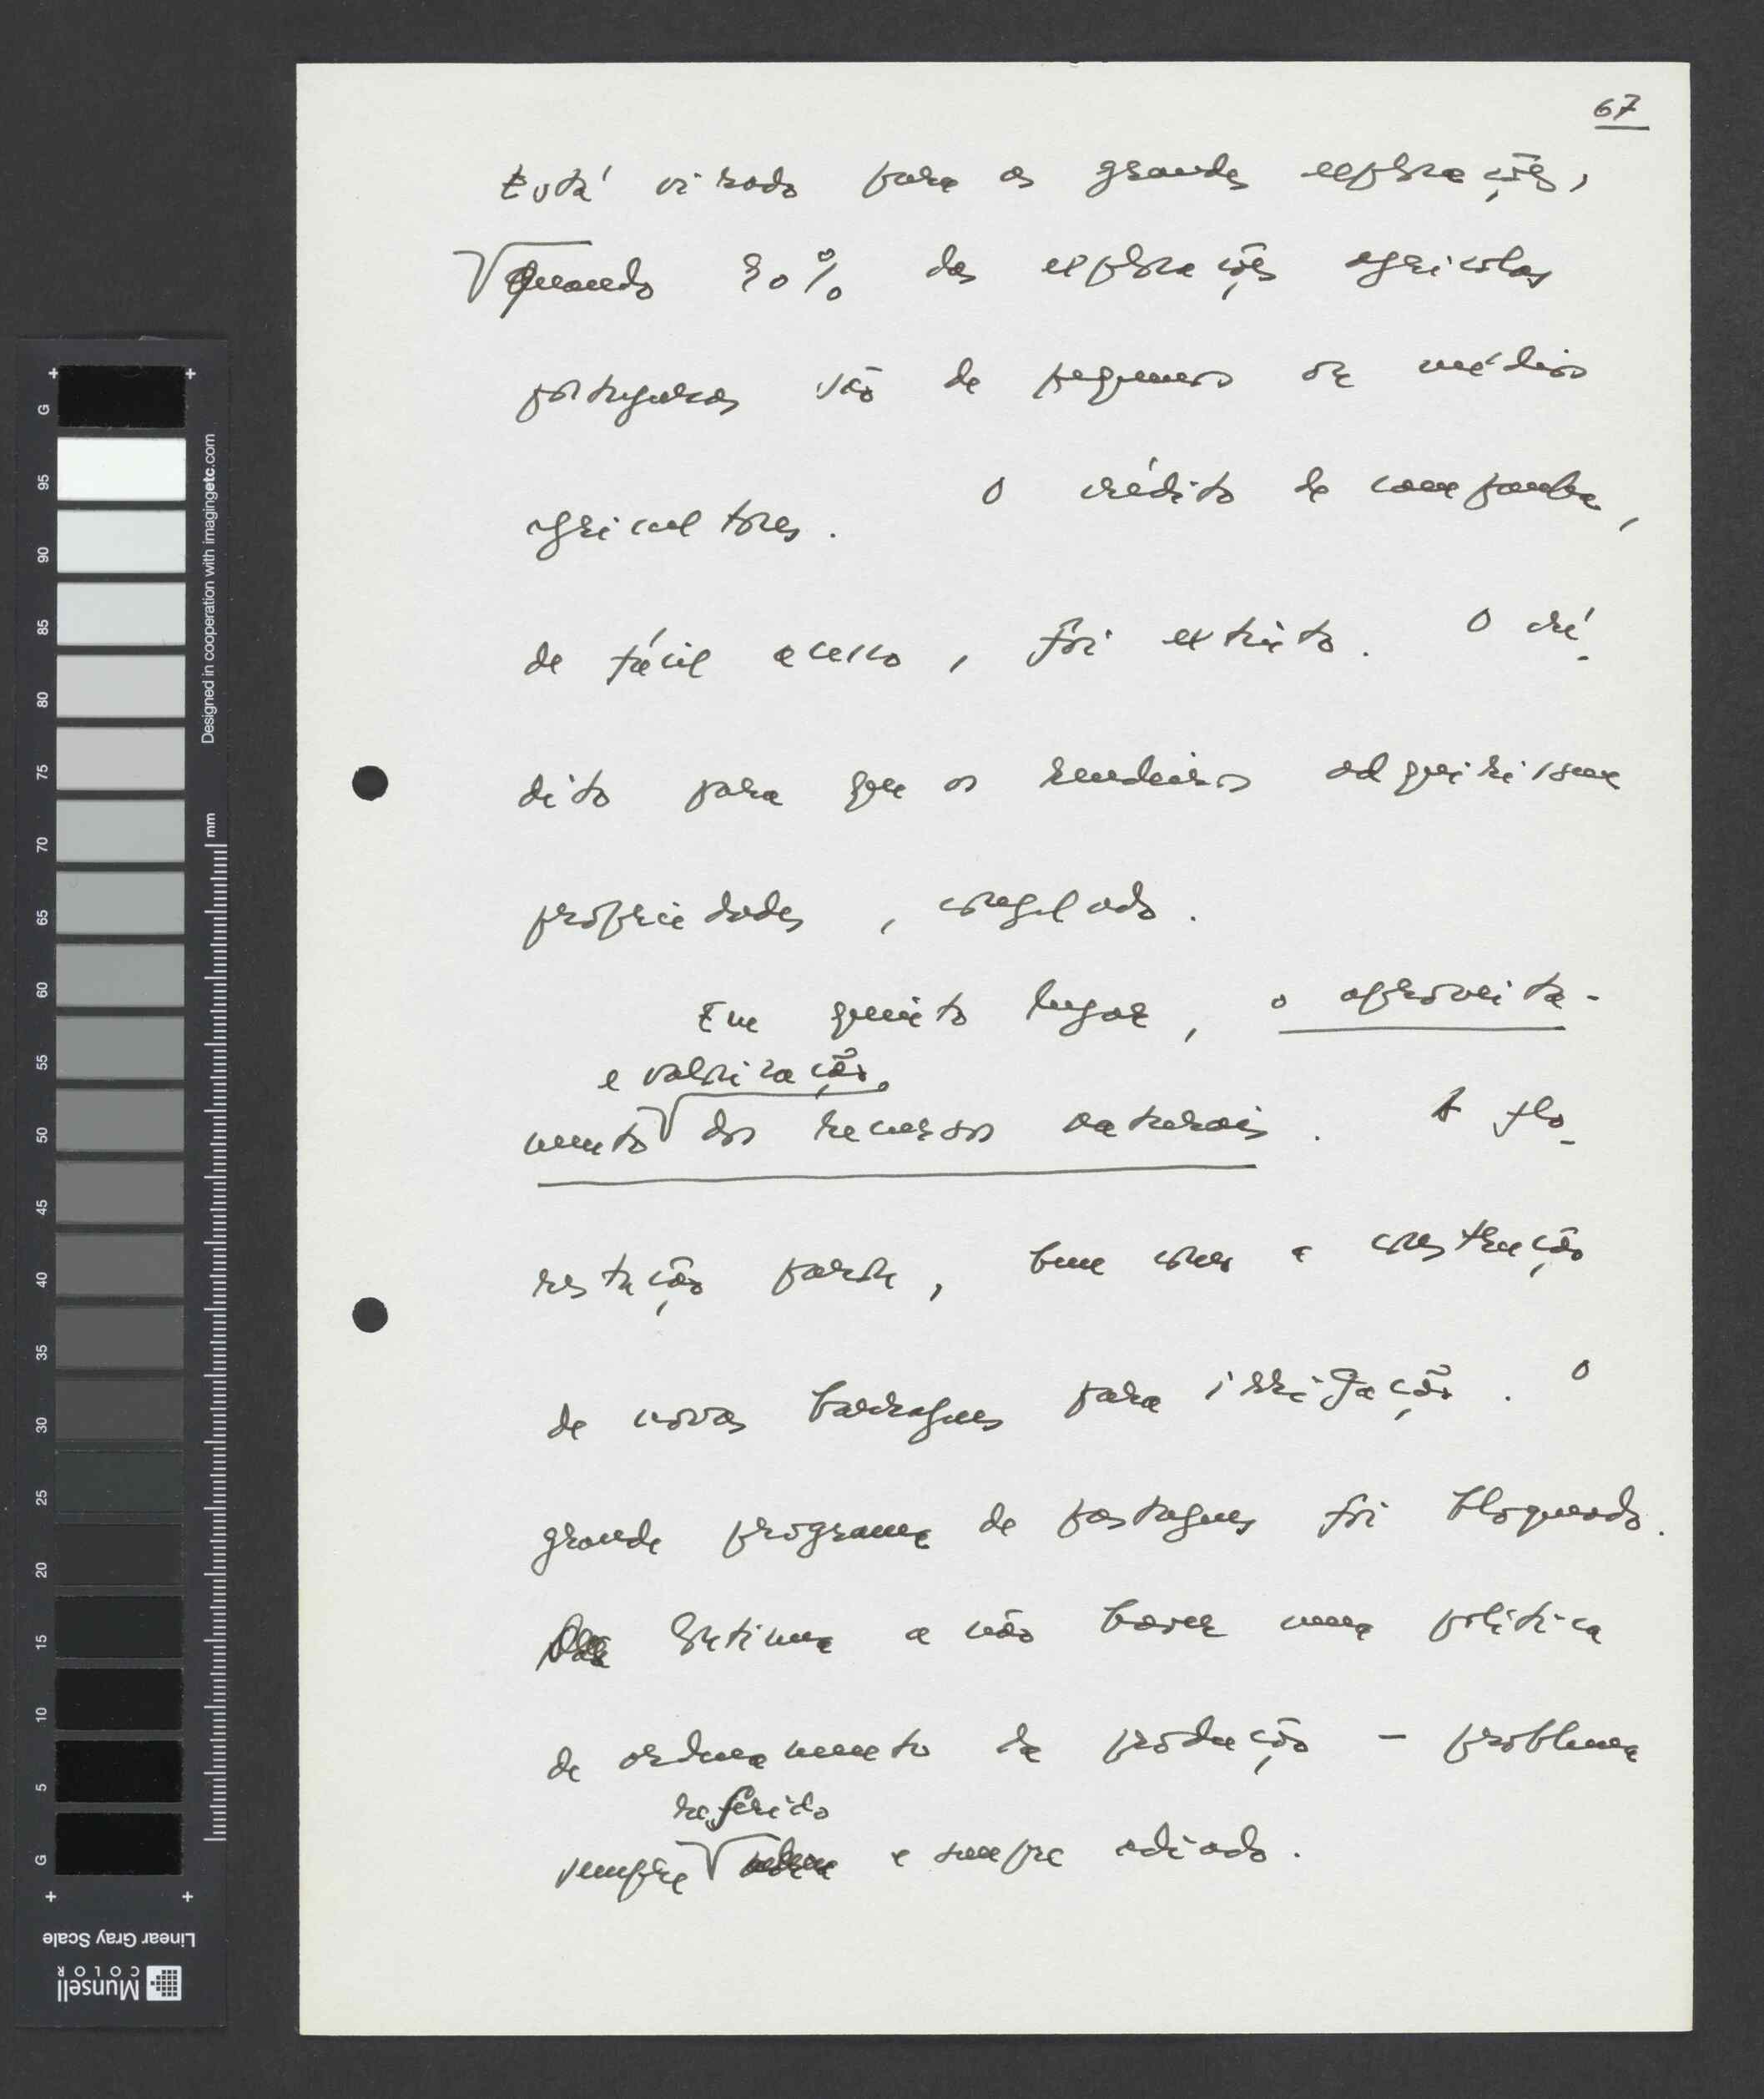 67
Está virado para as grandes explorações,
quando 90% das explorações agrícolas
portuguesas são de pequenos ou médios
agricultores. O crédito de campanha,
de fácil acesso, foi extinto. O cré-
dito para que os rendeiros adquirissem
propriedades, congelado.
Em quinto lugar, o aproveita-
e valorização
mento dos recursos naturais. A flo-
restação parou, bem como a construção
de novas barragens para irrigação. O
grande programa de pastagens foi bloqueado.
Continua a não haver uma política
de ordenamento da produção - problema
referido
sempre e sempre adiado.
G 95 90 85 80 75 70 65 60 55 50 45 40 35 30 25 20 15 10 5 G
Designed in cooperation with imagingetc.com
mm
Linear Gray Scale
Munsell
COLOR